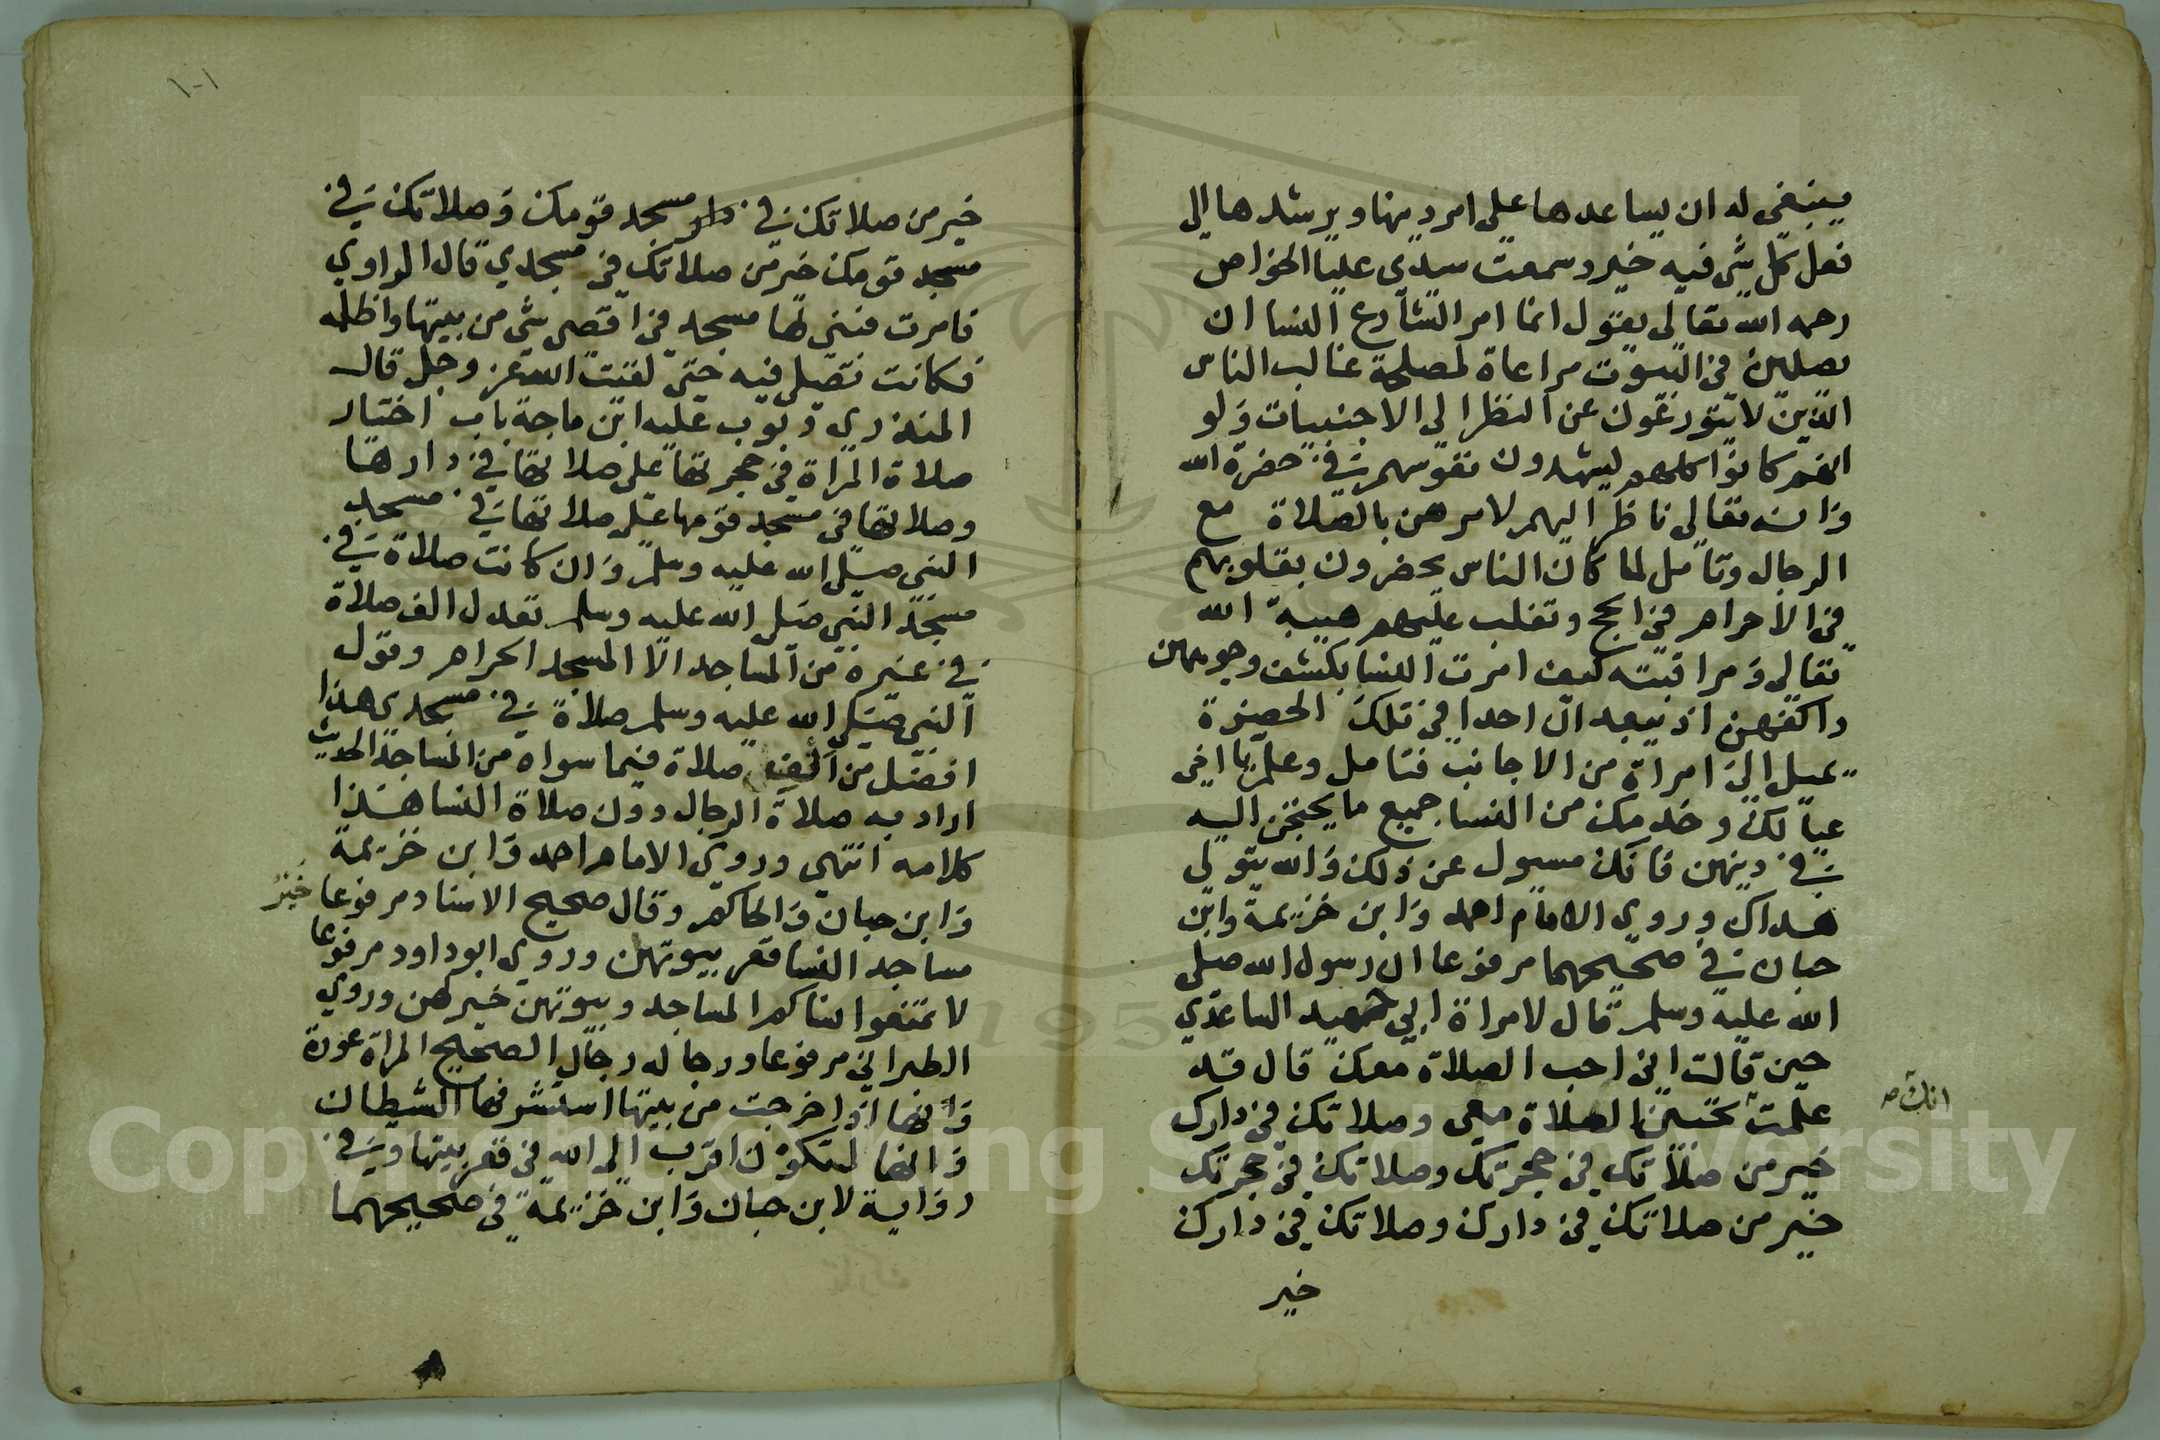 ينبغى له ان يساعدها على امر دينها ويرشدها الى
فعل كل شى فيه خير وسمعت سيدى عليا الخواص
رحمه الله تعالى يقول انما امر الشارع النسا ان
يصلين فى البيوت مراعاة لمصلحة غالب الناس
الذين لا يتورعون عن النظر الى الاجنبيات ولو
انهم كانوا كلهم يشهدون نفوسهم فى حضرة الله
وان الله تعالى ناظر اليهم لامرهن بالصلاة مع
الرجال وتامل لما كان الناس يحضرون بقلوبهم
فى الاحرام فى الحج وتغلب عليهم هيبة الله
تعالى ومراقبته كيف امرت النسا بكشف وجوههن
واكفهن اذ يبعد ان احدا فى تلك الحضرة
يميل الى امراة من الاجانب فتامل وعلم يا اخى
عيالك وخدمك من النسا جميع ما يحتجن اليه
فى دينهن فانك مسول عن ذلك والله يتولى
هداك وروى الامام احمد وابن خزيمة وابن
حبان فى صحيحهما مرفوعا ان رسول الله صلى
الله عليه وسلم قال لامراة ابى حميد الساعدي
حين قالت انى احب الصلاة معك قال قد
علمت تحبين الصلاة معى وصلاتك فى دارك
انك صح
خير من صلاتك فى حجرتك وصلاتك فى حجرتك
خير من صلاتك فى دارك وصلاتك فى دارك
خير
١٠١
خير من صلاتك فى دار مسجد قومك وصلاتك فى
مسجد قومك خير من صلاتك فى مسجدي قال الراوي
فامرت فبنى لها مسجد فى اقصى شى من بيتها واظلمه
فكانت تصلى فيه حتى لقيت الله عز وجل قال
المنذرى وبوب عليه ابن ماجة باب اختيار
صلاة المراة فى حجرتها على صلاتها فى دارها
وصلاتها فى مسجد قومها على صلاتها فى مسجد
النبى صلى الله عليه وسلم وان كانت صلاة فى
مسجد النبى صلى الله عليه وسلم تعدل الف صلاة
فى غيره من المساجد الا المسجد الحرام وقول
النبى صلى الله عليه وسلم صلاة فى مسجدى هذا
افضل من الف صلاة فيما سواه من المساجد الحديث
اراد به صلاة الرجال دون صلاة النسا هذا
كلامه انتهى وروي الامام احمد وابن خزيمة
وابن حبان والحاكم وقال صحيح الاسناد مرفوعا خير
مساجد النسا قعر بيوتهن وروى ابو داود مرفوعا
لا تمنعوا نساكم المساجد وبيوتهن خير لهن وروي
الطبرانى مرفوعا ورجاله رجال الصحيح المراة عورة
وانها اذا خرجت من بيتها استشرفها الشيطان
وانها لتكون اقرب الى الله فى قعر بيتها وفى
رواية لابن حبان وابن خزيمة فى صحيحهما
Copyright © King Saud University
195